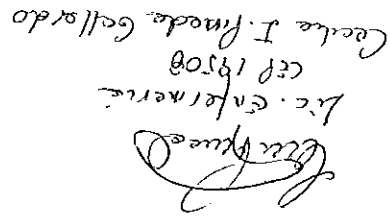 Lic. Enfermería
CEP 19508
Cecilia I. Pineda Gallardo